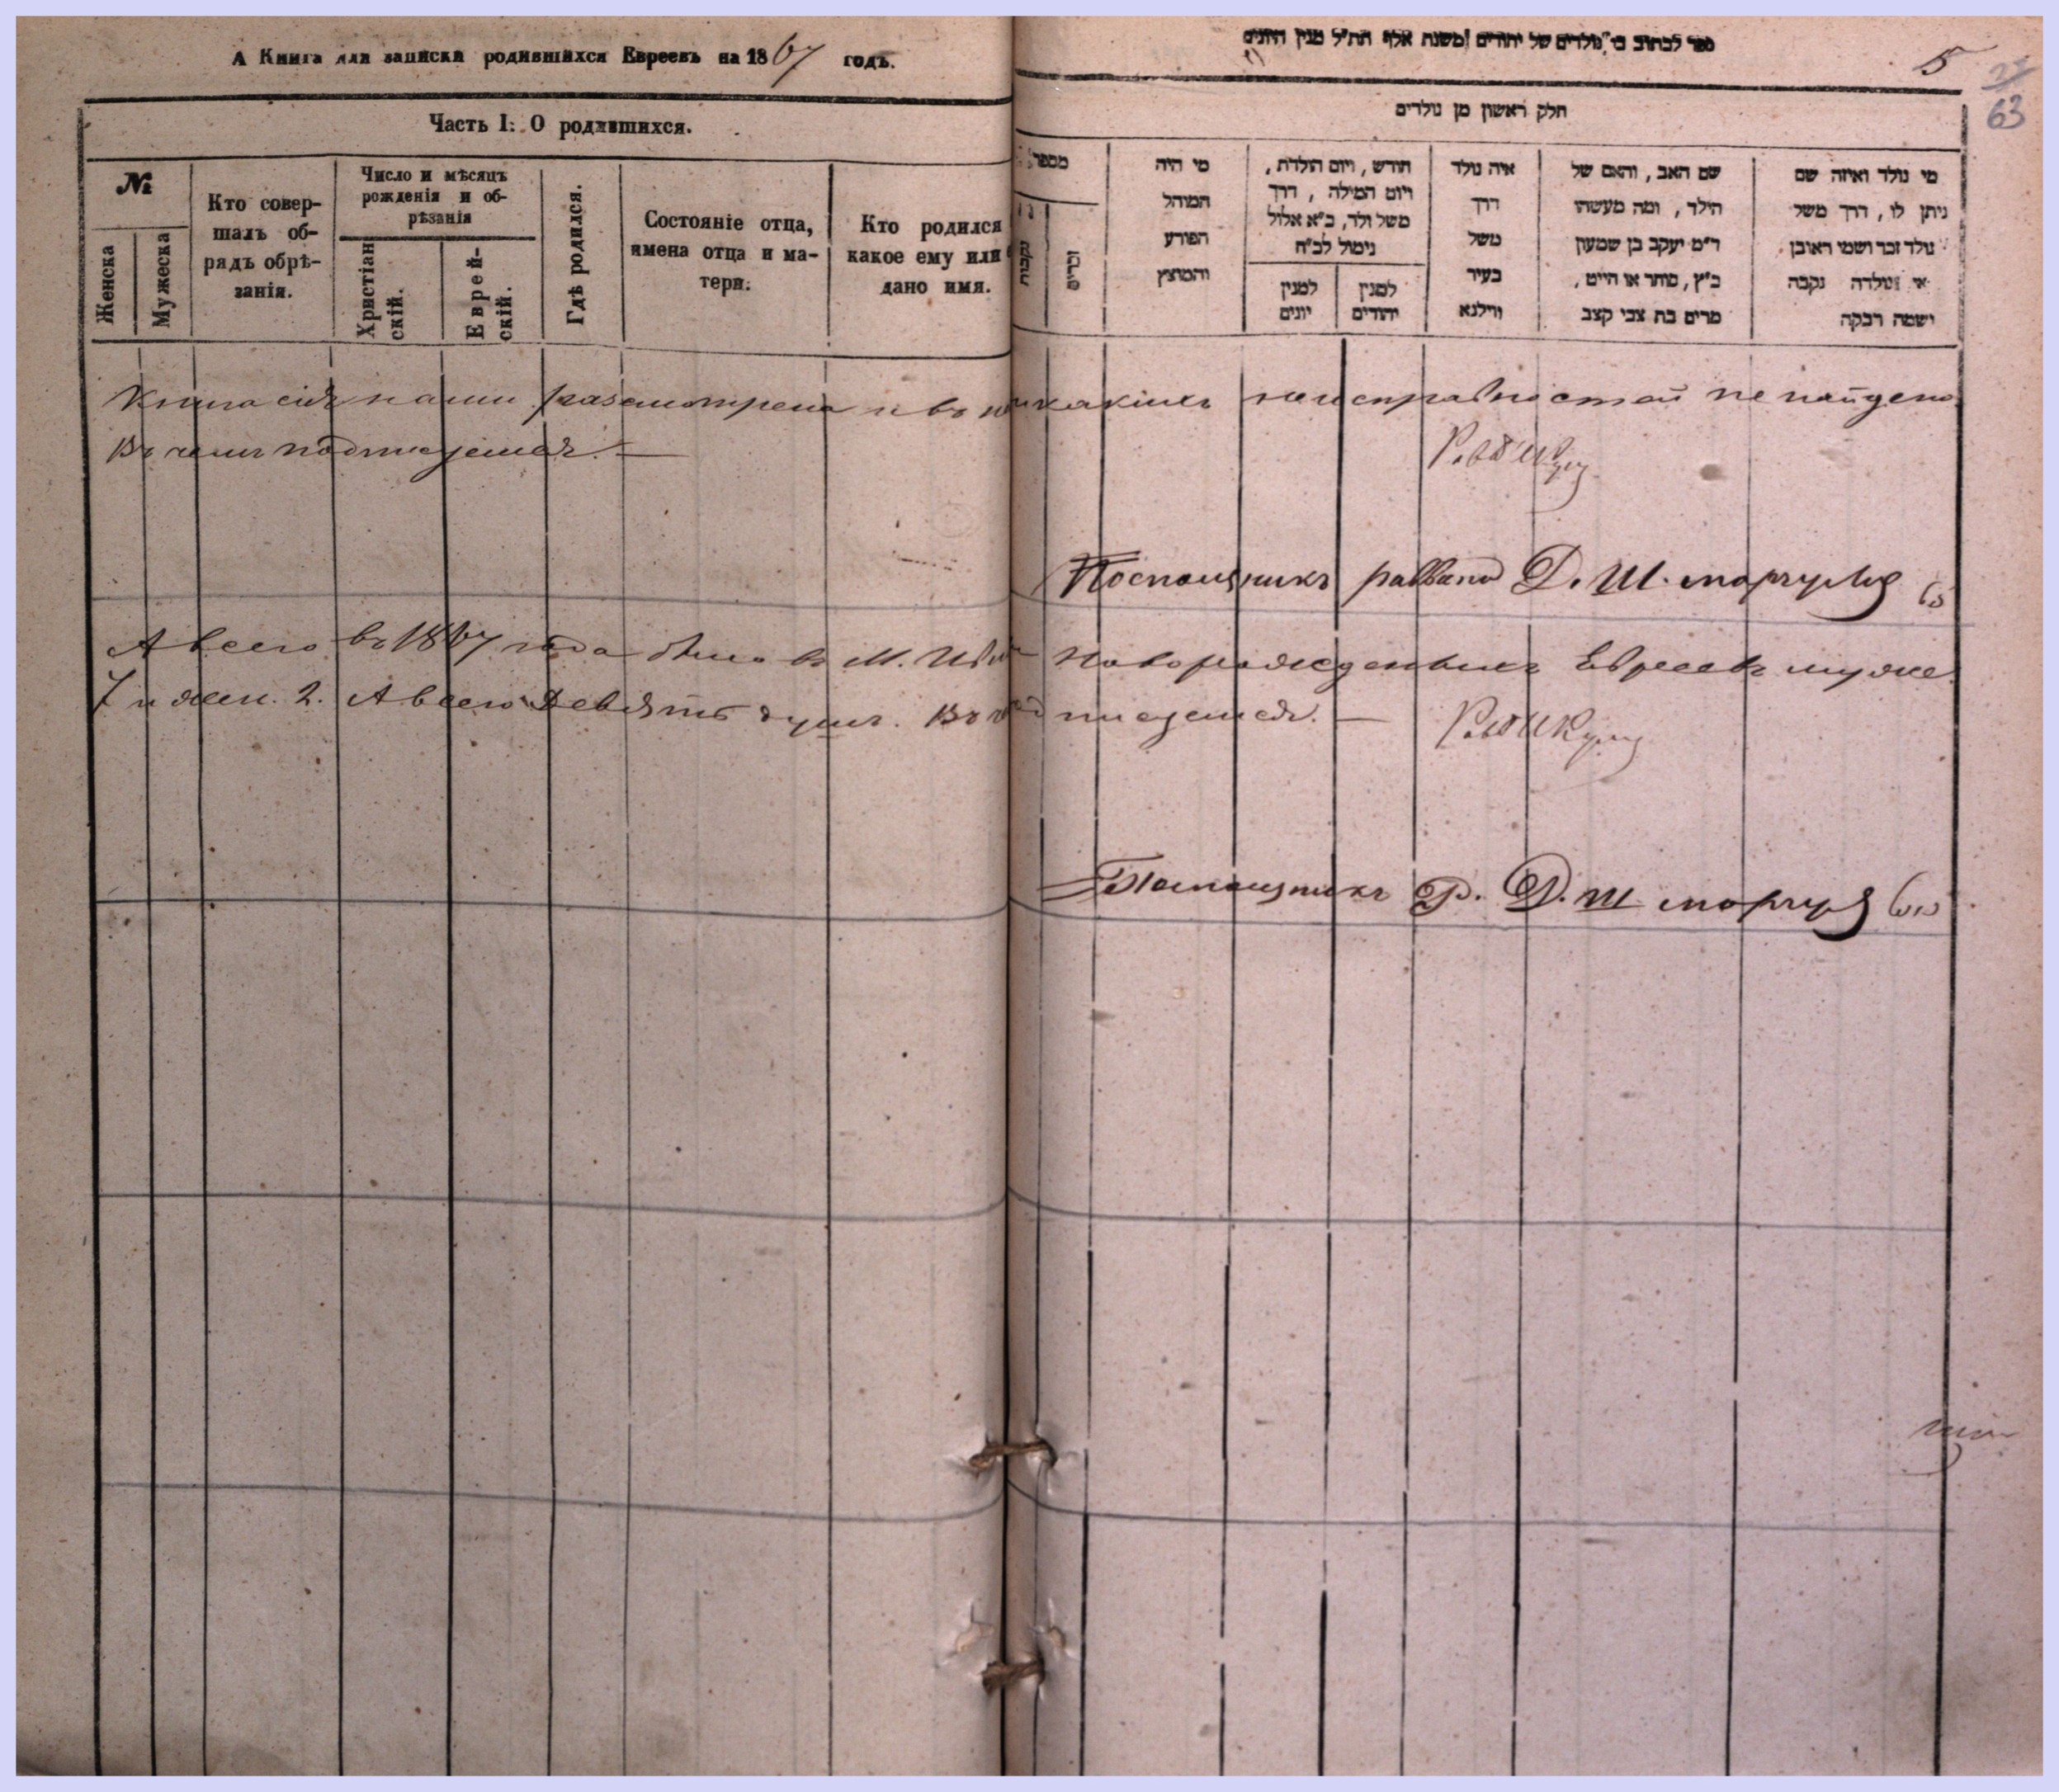 А Книга для записки родившихся Евреевъ на 1867 годъ.
Часть I: О родившихся.
№
Женска
Мужеска
Кто совер-
шалъ об-
рядъ обрѣ-
занія.
Число и мѣсяцъ
рожденія и об-
рѣзанія
Христіан
скій.
Еврей-
скій.
Гдѣ родился.
Состояніе отца,
имена отца и ма-
тери.
Кто родился
какое ему или
дано имя.
ספר לכתוב בו נולדים של יהודים משנת אלף תת״ל מנין היונים
5
63
חלק ראשון מן נולדים
מספר
נקבות
זכרים
מי היה
המוהל
הפורע
והמוצץ
חודש, ויום הולדת,
ויום המילה, דרך
משל ולד, כ״א אלול
נימול לכ״ח
למנין
יונים
למנין
יהודים
איה נולד
דרך
משל
בעיר
ווילנא
שם האב, והאם של
הילד, ומה מעשהו
ר״מ יעקב בן שמעון
כ״ץ, סוחר או חייט,
מרים בת צבי קצב
מי נולד ואיזה שם
ניתן לו, דרך משל
נולד זכר ושמו ראובן
או נולדה נקבה
ושמה רבקה
Книга сія нами разсмотрена и въ никакихъ неисправностей не найдено
въ чемъ подписуемся. —
Посполщникъ раввина Д. Ш. моргулис
А всего въ 1867 года было въ М. новорожденныхъ Евреевъ муже.
7 и жен. 2. А всего Девять душъ. Въ подписуемся. —
Р. Д. Ш. моргулис